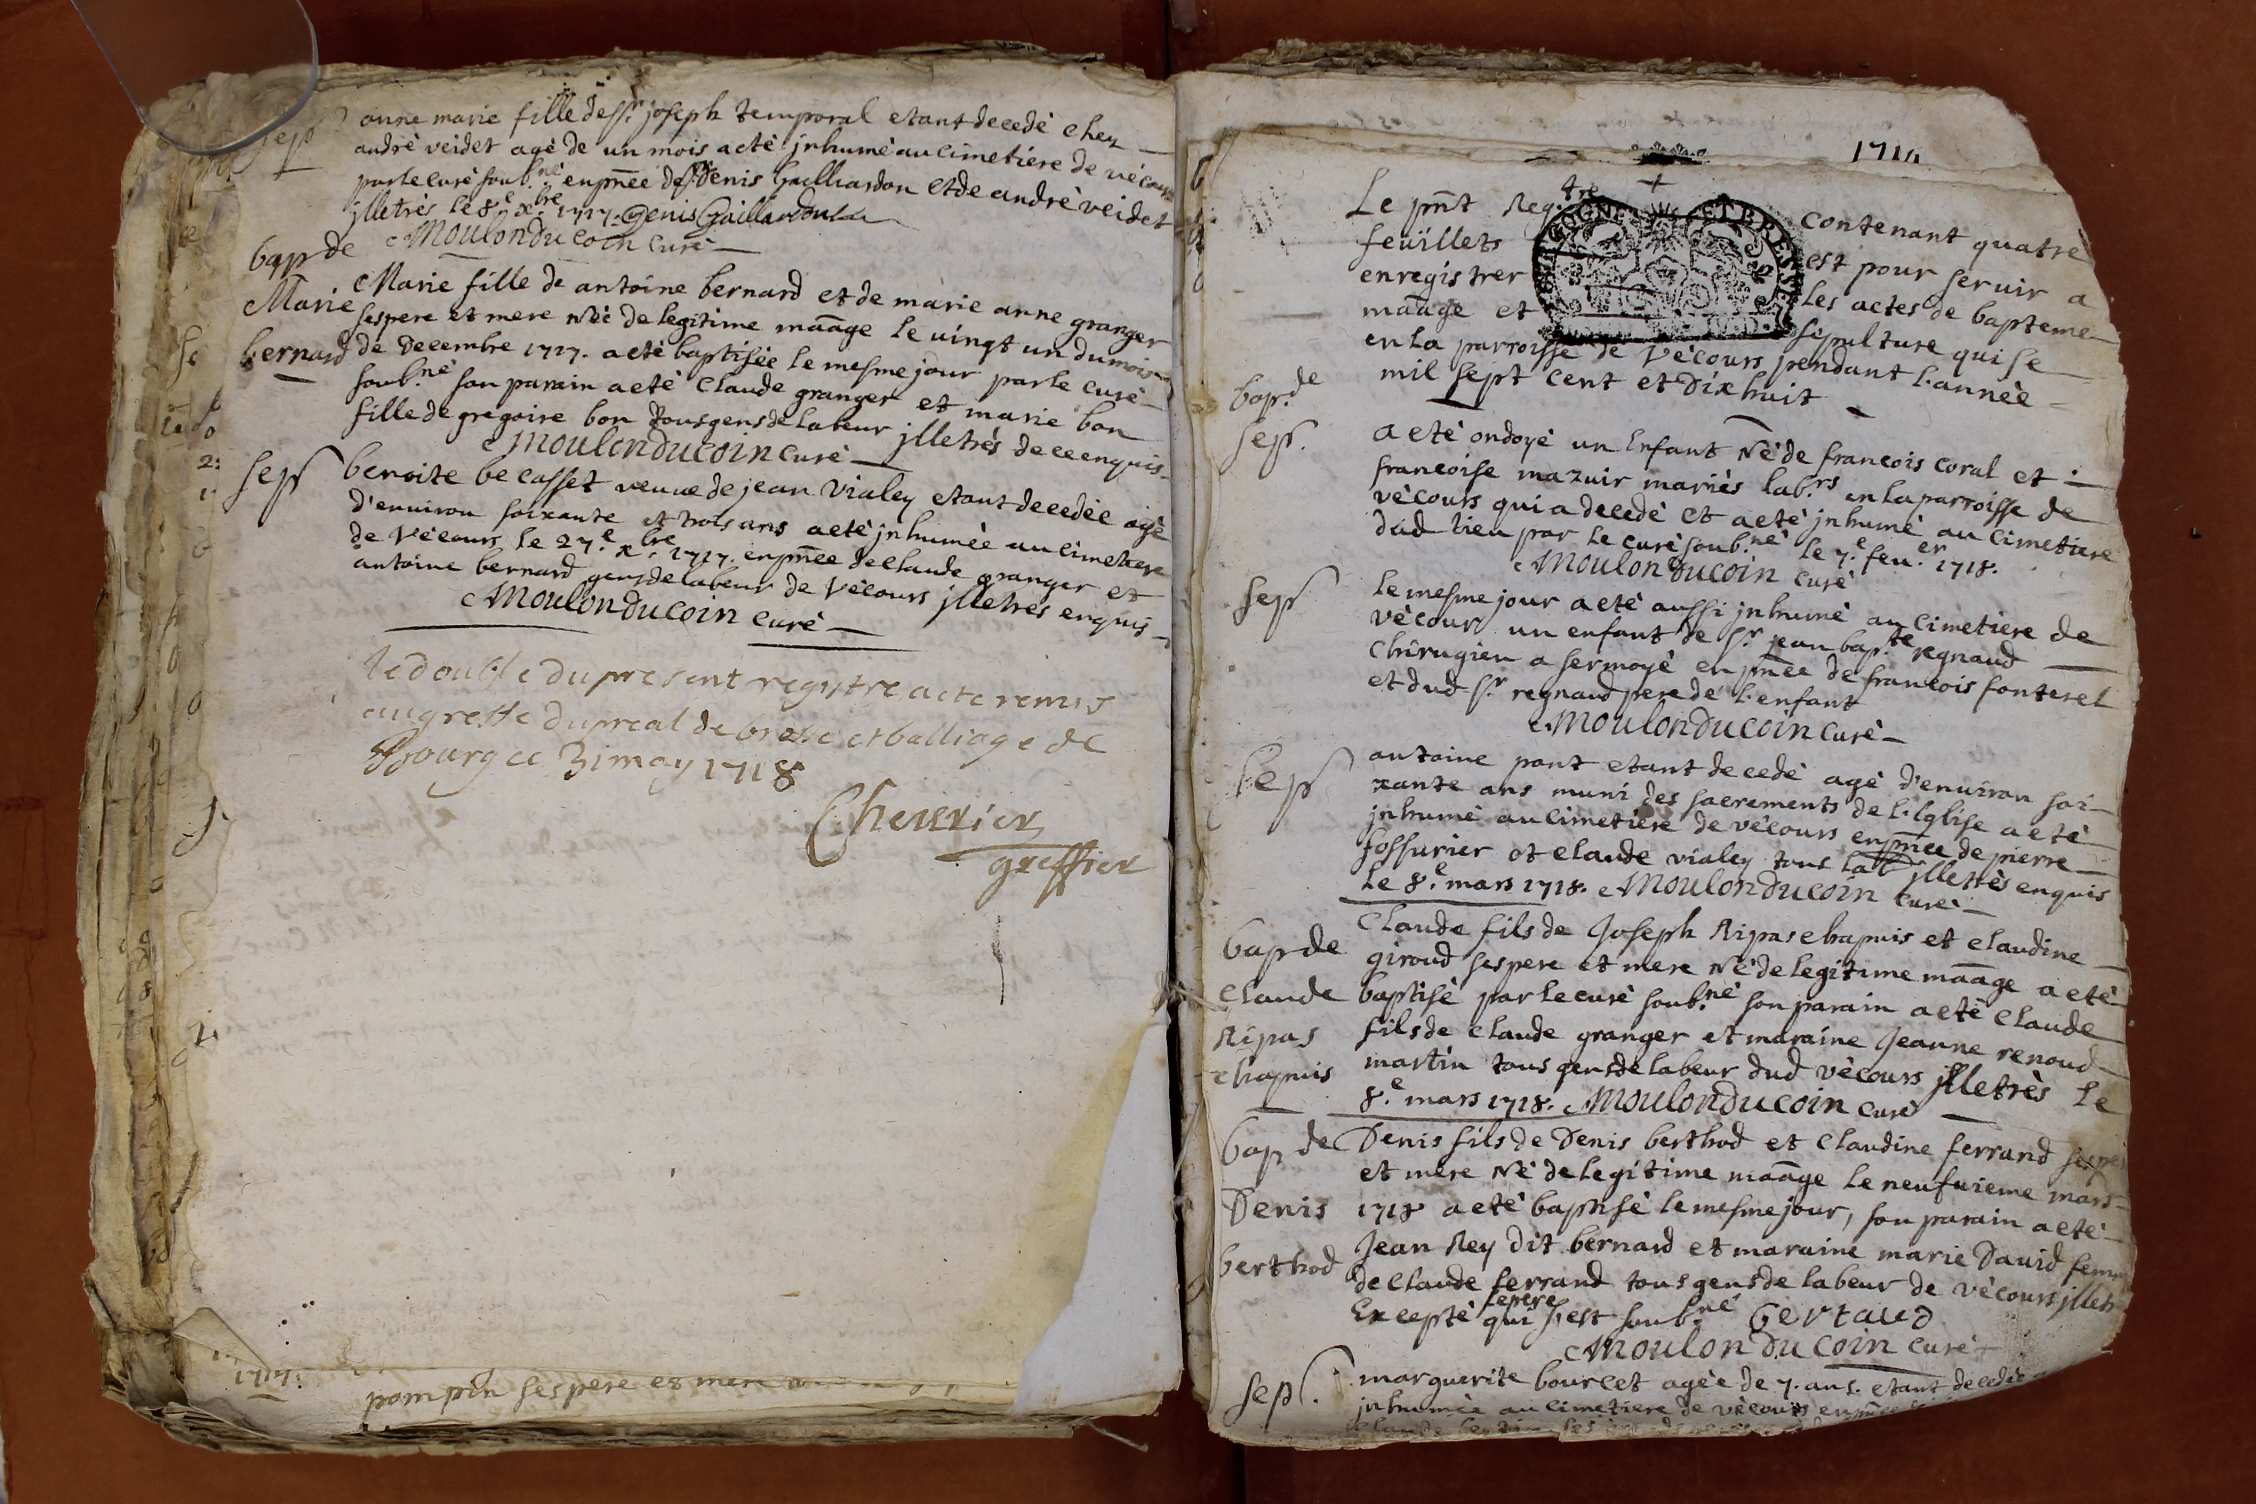 sep
anne marie fille de sr. joseph temporal etant decedè chez
andrè veidet agè de un mois a ètè jnhumè au cimetiere de vécours
par le curè soub.nè en pn̄ce de sr Denis Gailliardon et de andrè veidet
jlletrès le 8.e xbre 1717. Denis Gaillardon
Moulonducoin curè
bap de
Marie
bernard
Marie fille de antoine bernard et de marie anne granger
ses pere et mere Nèè de legitime maāge le vingt un du mois
de Decembre 1717. a etè baptisèe le mesme jour par le curè
soub.nè son parain a etè Claude granger et marie bon
fille de gregoire bon tous gens de labeur jlletrès de ce enquis
Moulonducoin curè
sep
benoite becasset veuve de jean vialey etant decedèe agè
d'environ soixante et trois ans a etè jnhumèe au cimetiere
de Vècours le 27.e xbre 1717. en pn̄ce de claude granger et
antoine bernard gens de labeur de vècours jlletrès enquis
Moulonducoin curè
le double du present registre a ete remis
au greffe du preal de bresse et balliage de
Bourg ce 31 may 1718
Cheurier
greffier
1717.
pompon ses pere et mere
1718
Le pn̄t Reg.tre contenant quatre
feüillets est pour servir a
enregistrer les actes de bapteme
maāge et sepulture qui se
en la parroisse de Vècours pendant l'annèe
mil sept cent et Dix huit
bap.de
sep.
a etè ondoyè un Enfant Nè de francois coral et
francoise mazuir mariès lab.rs en la parroisse de
vècours qui a decedè et a etè jnhumè au cimetiere
dud lieu par le curè soub.nè le 7.e feu.er 1718.
Moulonducoin curè
sep
le mesme jour a etè aussi jnhumè au cimetiere de
vècours un enfant de sr. jean bap.te regnaud
chirugien a sermoyè en pn̄ce de francois fonterel
et dud sr. regnaud pere de l'enfant
Moulonducoin curè
sep
antoine pont etant decedè agè d'environ soi
xante ans muni des sacrements de l'Eglise a etè
jnhumè au cimetiere de vècours en pn̄ce de pierre
fossurier et claude vialey tous lab jlletrès enquis
le 8.e mars 1718. Moulonducoin curè
bap de
claude
Ripas
chapuis
Claude fils de Joseph Ripas chapuis et claudine
giroud ses pere et mere Nè de legitime maāge a etè
baptisè par le curè soub.nè son parain a etè claude
fils de claude granger et maraine Jeanne renoud
martin tous gens de labeur dud vècours jlletrès le
8.e mars 1718. Moulonducoin curè
bap de
Denis
berthod
Denis fils de Denis berthod et claudine ferrand ses pere
et mere Nè de legitime maāge le neufvieme mars
1718 a etè baptisè le mesme jour, son parain a etè
Jean Rey dit bernard et maraine marie David femme
de claude ferrand tous gens de labeur de vècours jlletr
Exceptè le pere qui s'est soub.nè bertaud
Moulon du coin curè
sep.
marguerite bourcet agèe de 7. ans. etant decedèe
jnhumèe au cimetiere de vècours en pn̄ce